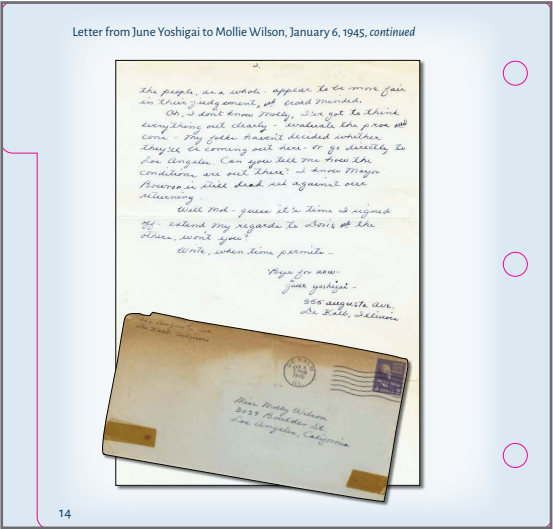 Letter from June Yoshigai to Mollie Wilson, January 6, 1945, continued
2.
the people, as a whole - appear to be more fair
in their judgement, and broad minded.
Oh, I don't know Molly, I've got to think
everything out clearly - evaluate the pros and
cons - My folks haven't decided whether
they'll be coming out here - or go directly to
Los Angeles. Can you tell me how the
conditions are out there? I know Mayor
Bowron is still dead set against our
returning -
Well Mol - guess it's time I signed
off - extend my regards to Doris and the
others, won't you?
Write, when time permits -
'Bye for now -
June Yoshigai -
355 Augusta Ave.
De Kalb, Illinois
Augusta Ave
De Kalb, Illinois
DE KALB
1945
ILL.
Miss Molly Wilson
3039 Boulder St
Los Angeles, California
14